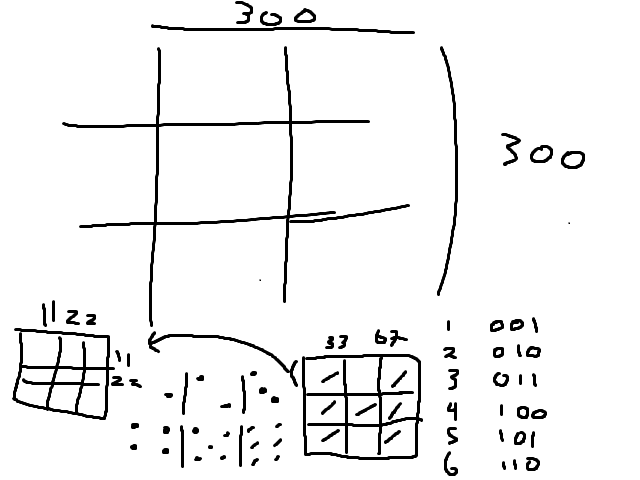 300
300
11 22
11
22
33 67
1 001
2 010
3 011
4 100
5 101
6 110